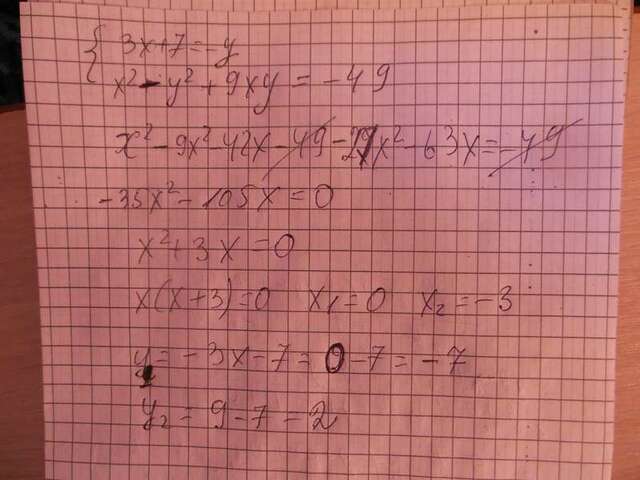 { 3x+7=-y
x² - y² + 9xy = -49
x² - 9x² - 42x - 49 - 27x² - 63x = -49
-35x² - 105x = 0
x² + 3x = 0
x(x+3)=0 x₁=0 x₂=-3
y₁ = -3x-7 = 0-7 = -7
y₂ = 9-7 = 2